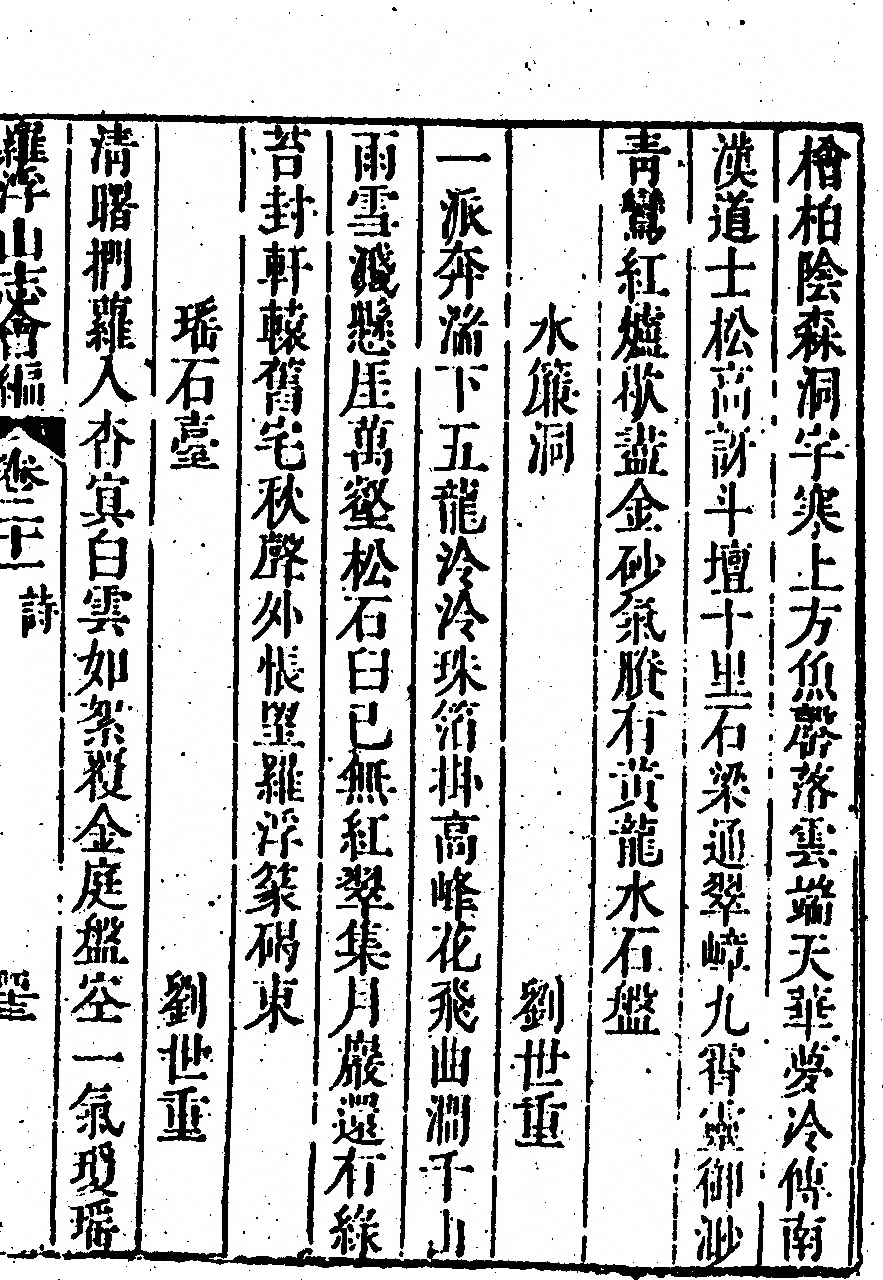 檜柏陰森洞宇寒上方魚罄落雲端天華夢冷傳南
漢道士松高訝斗壇十里石梁通翠嶂九霄靈御渺
青鸞紅爐欲盡金砂氣賸有黃龍水石盤
水簾洞 劉世重
一派奔湍下五龍泠泠珠箔掛高峰花飛曲澗千山
雨雪濺懸厓萬壑松石臼已無紅翠集月巖還有綠
苔封軒轅舊宅秋聲外悵望羅浮篆碣東
瑤石臺 劉世重
清曙捫蘿入杳冥白雲如絮覆金庭盤空一氣瓊瑤
羅浮山志會編 卷二十一 詩